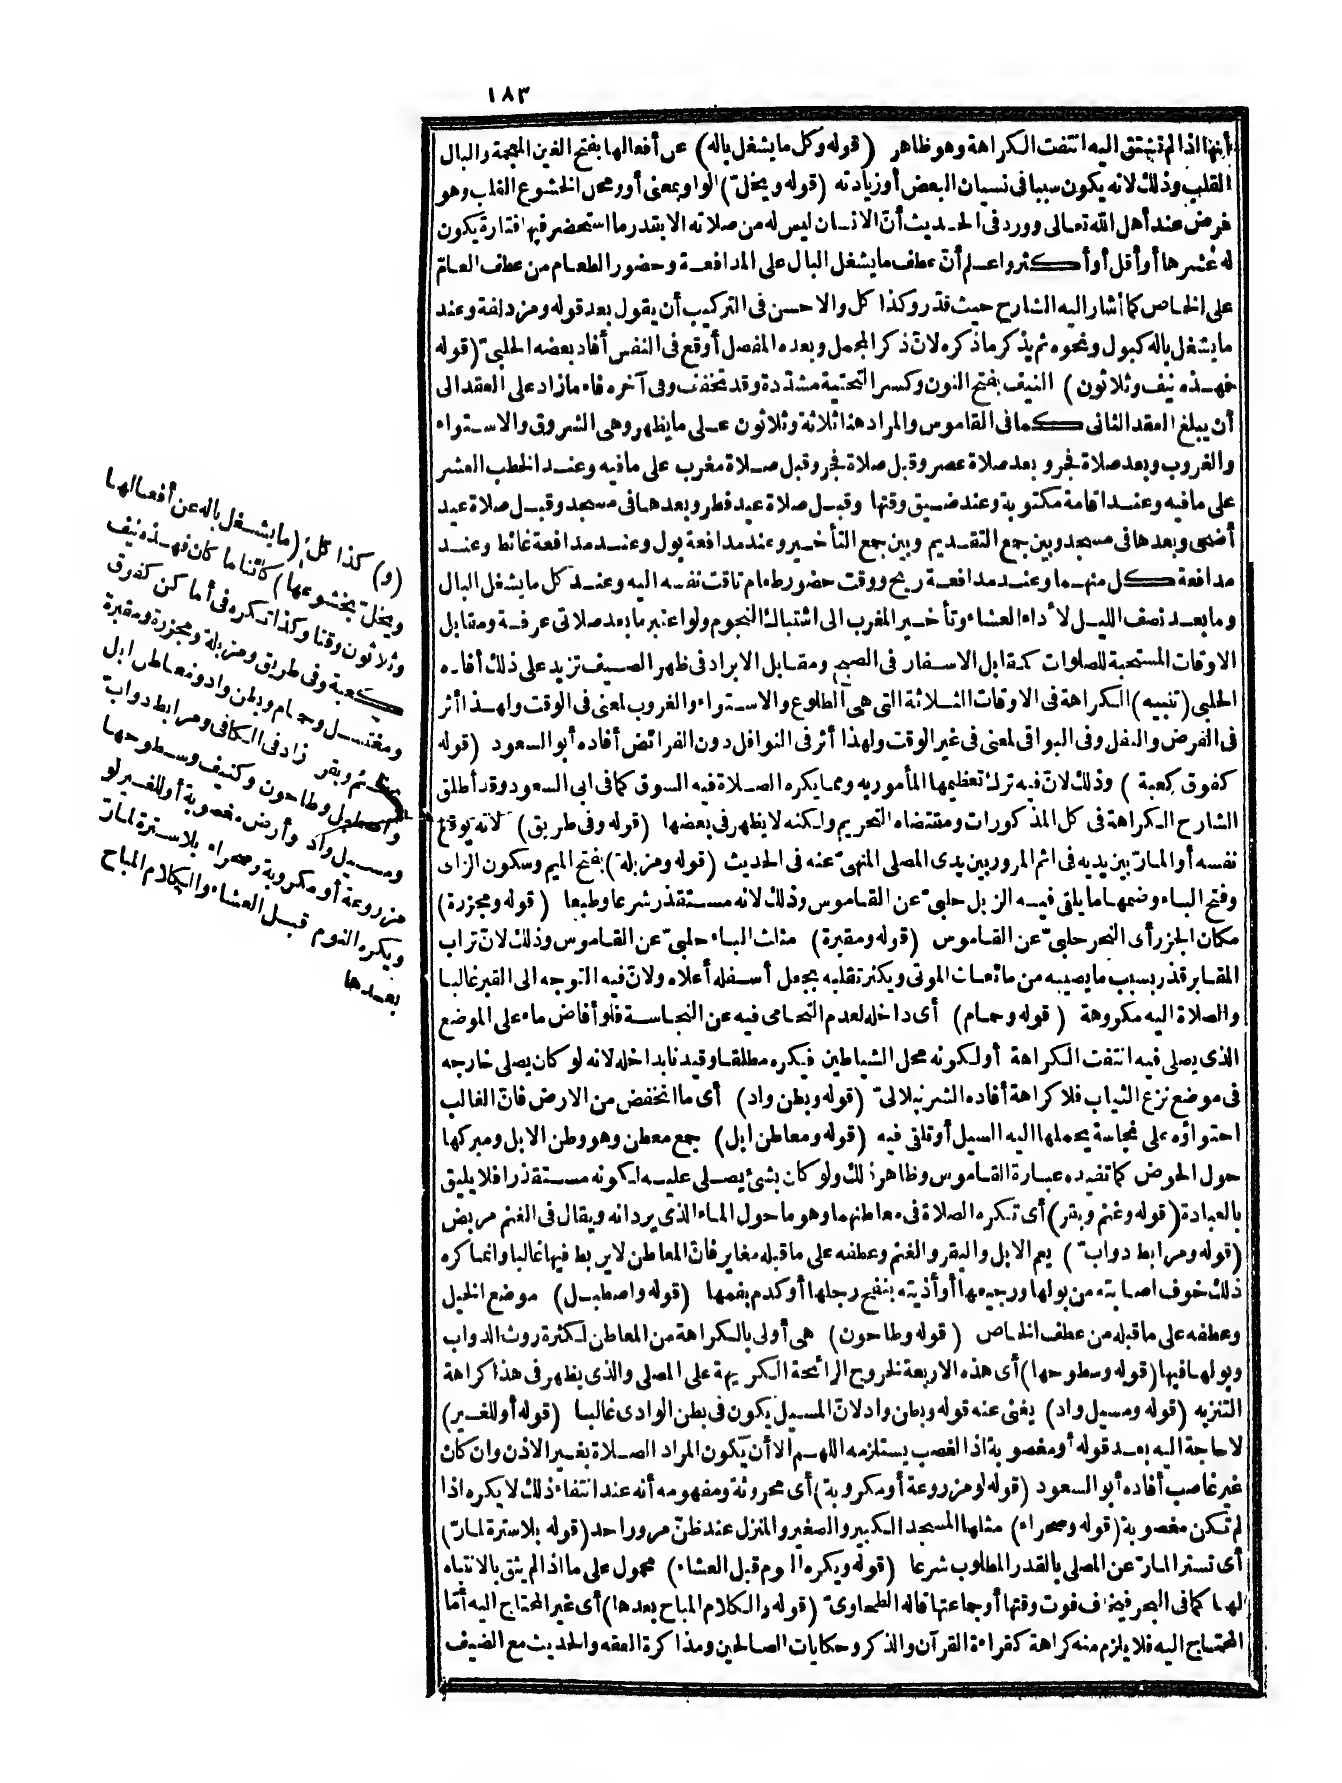 ١٨٣
أنها اذا لم تتق اليه انتفت الكراهة وهو ظاهر (قوله وكل ما يشغل باله) عن أفعالها بفتح الغين المعجمة والبال
القلب وذلك لانه يكون سببا فى نسيان البعض أو زيادته (قوله ويخلّ) الواو بمعنى أو ومحل الخشوع القلب وهو
فرض عند أهل الله تعالى وورد فى الحديث أنّ الانسان ليس له من صلاته الا بقدر ما استحضر فيها فتارة يكون
له عُشرها أو أقل أو أكثر واعلم أنّ عطف ما يشغل البال على المدافعة وحضور الطعام من عطف العامّ
على الخاص كما أشار اليه الشارح حيث قدر وكذا كل والاحسن فى التركيب أن يقول بعد قوله ومزدلفة وعند
ما يشغل باله كبول ونحوه ثم يذكر ما ذكره لانّ ذكر المجمل وبعده المفصل أوقع فى النفس أفاد بعضه الحلبىّ (قوله
فهذه نيف وثلاثون) النيف بفتح النون وكسر التحتية مشدّدة وقد تخفف وفى آخره فاء ما زاد على العقد الى
أن يبلغ العقد الثانى كما فى القاموس والمراد هنا ثلاثة وثلاثون على ما يظهر وهى الشروق والاستواء
والغروب وبعد صلاة فجر وبعد صلاة عصر وقبل صلاة فجر وقبل صلاة مغرب على ما فيه وعند الخطب العشر
على ما فيه وعند اقامة مكتوبة وعند ضيق وقتها وقبل صلاة عيد فطر وبعدها فى مسجد وقبل صلاة عيد
أضحى وبعدها فى مسجد وبين جمع التقديم وبين جمع التأخير وعند مدافعة بول وعند مدافعة غائط وعند
مدافعة كل منهما وعند مدافعة ريح ووقت حضور طعام تاقت نفسه اليه وعند كل ما يشغل البال
وما بعد نصف الليل لأداء العشاء وتأخير المغرب الى اشتباك النجوم ولو اعتبر ما بعد صلاتى عرفة ومقابل
الاوقات المستحبة للصلوات كمقابل الاسفار فى الصبح ومقابل الابراد فى ظهر الصيف تزيد على ذلك أفاده
الحلبى (تنبيه) الكراهة فى الاوقات الثلاثة التى هى الطلوع والاستواء والغروب لمعنى فى الوقت ولهذا أثر
فى الفرض والنفل وفى البواقى لمعنى فى غير الوقت ولهذا أثر فى النوافل دون الفرائض أفاده أبو السعود (قوله
كفوق كعبة) وذلك لانّ فيه ترك تعظيمها المأمور به ومما يكره الصلاة فيه السوق كما فى ابى السعود وقد أطلق
الشارح الكراهة فى كل المذكورات ومقتضاه التحريم ولكنه لا يظهر فى بعضها (قوله وفى طريق) لانه يوقع
نفسه أو المارّ بين يديه فى اثم المرور بين يدى المصلى المنهىّ عنه فى الحديث (قوله ومزبلة) بفتح الميم وسكون الزاى
وفتح الباء وضمها ما يلقى فيه الزبل حلبىّ عن القاموس وذلك لانه مستقذر شرعا وطبعا (قوله ومجزرة)
مكان الجزر أى النحر حلبىّ عن القاموس (قوله ومقبرة) مثلث الباء حلبىّ عن القاموس وذلك لانّ تراب
المقابر قذر بسبب ما يصيبه من مائعات الموتى ويكثر تقلبه بجعل أسفله أعلاه ولانّ فيه التوجه الى القبر غالبا
والصلاة اليه مكروهة (قوله وحمام) أى داخله لعدم التحامى فيه عن النجاسة فلو أفاض ماء على الموضع
الذى يصلى فيه انتفت الكراهة أو لكونه محل الشياطين فيكره مطلقا وقيدنا بداخله لانه لو كان يصلى خارجه
فى موضع نزع الثياب فلا كراهة أفاده الشرنبلالىّ (قوله وبطن واد) أى ما انخفض من الارض فانّ الغالب
احتواؤه على نجاسة يحملها اليه السيل أو تلقى فيه (قوله ومعاطن ابل) جمع معطن وهو وطن الابل ومبركها
حول الحوض كما تفيده عبارة القاموس وظاهر ذلك ولو كان بشئ يصلى عليه لكونه مستقذرا فلا يليق
بالعبادة (قوله وغنم وبقر) أى تكره الصلاة فى معاطنهما وهو ما حول الماء الذى يردانه ويقال فى الغنم مربض
(قوله ومرابط دوابّ) يعم الابل والبقر والغنم وعطفه على ما قبله مغاير فانّ المعاطن لا يربط فيها غالبا وانما كره
ذلك خوف اصابته من بولها ورجيعها أو أذيته بنفح رجلها أو كدم بفمها (قوله واصطبل) موضع الخيل
وعطفه على ما قبله من عطف الخاص (قوله وطاحون) هى أولى بالكراهة من المعاطن لكثرة روث الدواب
وبولها فيها (قوله وسطوحها) أى هذه الاربعة لخروج الرائحة الكريهة على المصلى والذى يظهر فى هذا كراهة
التنزيه (قوله ومسيل واد) يغنى عنه قوله وبطن واد لانّ المسيل يكون فى بطن الوادى غالبا (قوله أو للغير)
لا حاجة اليه بعد قوله أو مغصوبة اذ الغصب يستلزمه اللهم الا أن يكون المراد الصلاة بغير الاذن وان كان
غير غاصب أفاده أبو السعود (قوله لو مزروعة أو مكروبة) أى محروثة ومفهومه أنه عند انتفاء ذلك لا يكره اذا
لم تكن مغصوبة (قوله وصحراء) مثلها المسجد الكبير والصغير والمنزل عند ظنّ مرور احد (قوله بلا سترة لمارّ)
أى تستر المارّ عن المصلى بالقدر المطلوب شرعا (قوله ويكره النوم قبل العشاء) محمول على ما اذا لم يثق بالانتباه
لها كما فى البحر فيخاف فوت وقتها أو جماعتها قاله الطحاوىّ (قوله والكلام المباح بعدها) أى غير المحتاج اليه أمّا
المحتاج اليه فلا يلزم منه كراهة كقراءة القرآن والذكر وحكايات الصالحين ومذاكرة الفقه والحديث مع الضيف
(و) كذا كل (ما يشغل باله عن أفعالها
ويخلّ بخشوعها) كائنا ما كان فهذه نيف
وثلاثون وقتا وكذا تكره فى أماكن كفوق
كعبة وفى طريق ومزبلة ومجزرة ومقبرة
ومغتسل وحمام وبطن واد ومعاطن ابل
وغنم وبقر زاد فى الكافى ومرابط دوابّ
واصطبل وطاحون وكنيف وسطوحها
ومسيل واد وأرض مغصوبة أو للغير لو
مزروعة أو مكروبة وصحراء بلا سترة لمارّ
ويكره النوم قبل العشاء والكلام المباح
بعدها